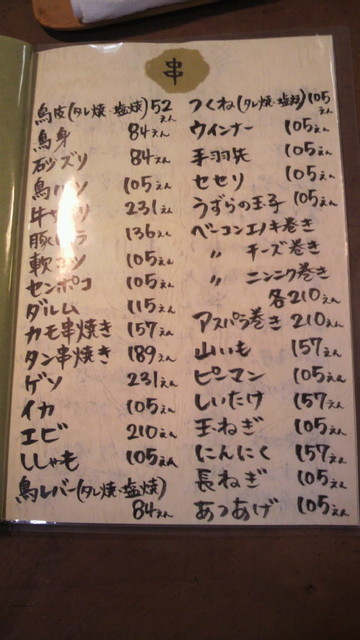 串
鳥皮(タレ焼・塩焼)52えん
鳥身 84えん
砂ズリ 84えん
105えん
231えん
136えん
軟コツ 105えん
センポコ 105えん
ダルム 115えん
カモ串焼き 157えん
タン串焼き 189えん
ゲソ 231えん
イカ 105えん
エビ 210えん
ししゃも 105えん
鳥レバー(タレ焼・塩焼)
84えん
つくね(タレ焼・塩焼)105えん
ウインナー 105えん
手羽先 105えん
セセリ 105えん
うずらの玉子 105えん
ベーコンエノキ巻き
〃 チーズ巻き
〃 ニンニク巻き
各210えん
アスパラ巻き 210えん
山いも 157えん
ピーマン 105えん
しいたけ 157えん
玉ねぎ 105えん
にんにく 157えん
長ねぎ 105えん
あつあげ 105えん